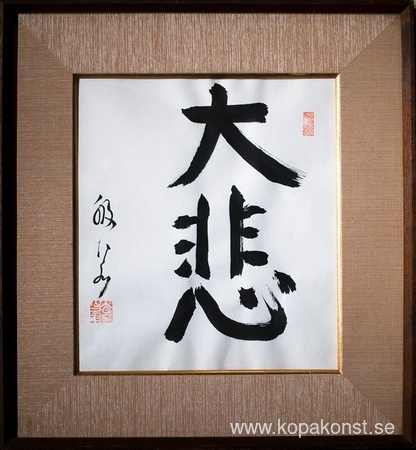 大悲
般若
www.kopakonst.se